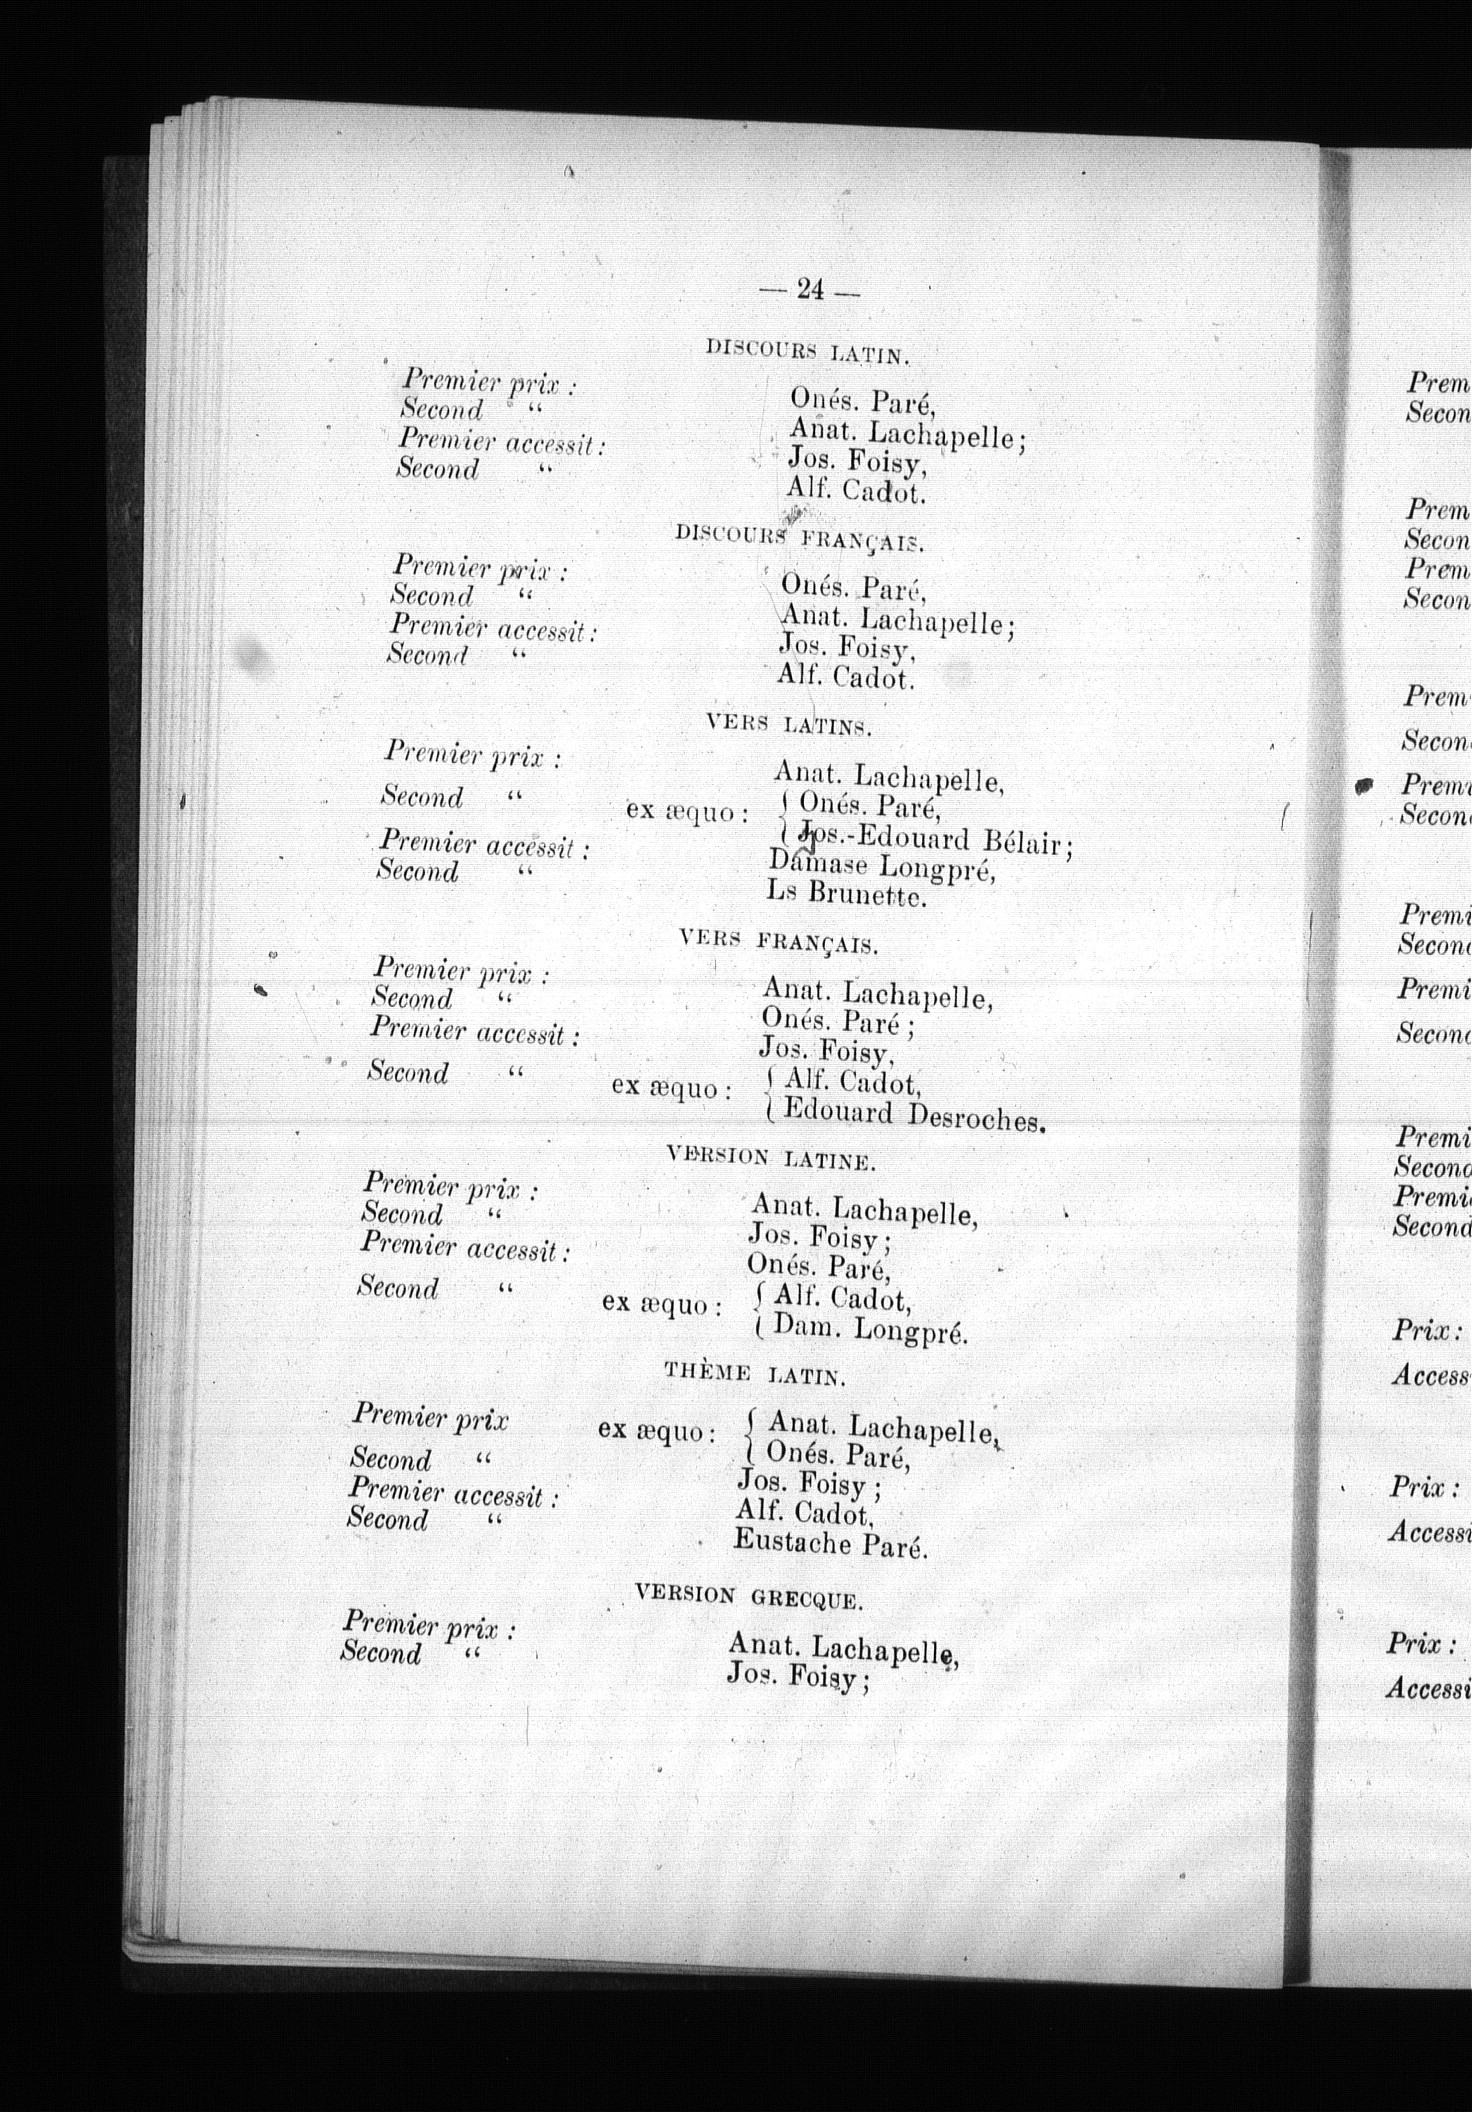 — 24 —
DISCOURS LATIN.
Premier prix : Onés. Paré,
Second “ Anat. Lachapelle;
Premier accessit: Jos. Foisy,
Second “ Alf. Cadot.
DISCOURS FRANÇAIS.
Premier prix : Onés. Paré,
Second “ Anat. Lachapelle;
Premier accessit: Jos. Foisy,
Second “ Alf. Cadot.
VERS LATINS.
Premier prix : Anat. Lachapelle,
Second “ ex æquo : { Onés. Paré,
Jos.-Edouard Bélair;
Premier accessit : Damase Longpré,
Second “ Ls Brunette.
VERS FRANÇAIS.
Premier prix : Anat. Lachapelle,
Second “ Onés. Paré ;
Premier accessit : Jos. Foisy,
Second “ ex æquo : { Alf. Cadot,
Edouard Desroches.
VERSION LATINE.
Premier prix : Anat. Lachapelle,
Second “ Jos. Foisy ;
Premier accessit : Onés. Paré,
Second “ ex æquo : { Alf. Cadot,
Dam. Longpré.
THÈME LATIN.
Premier prix ex æquo : { Anat. Lachapelle,
Onés. Paré,
Second “ Jos. Foisy ;
Premier accessit : Alf. Cadot,
Second “ Eustache Paré.
VERSION GRECQUE.
Premier prix : Anat. Lachapelle,
Second “ Jos. Foisy ;
Prem
Secon
Prem
Secon
Prem
Secon
Prem
Secon
Prem
Secon
Premi
Secon
Premi
Secon
Premi
Second
Premi
Second
Prix :
Access
Prix :
Accessi
Prix :
Accessi